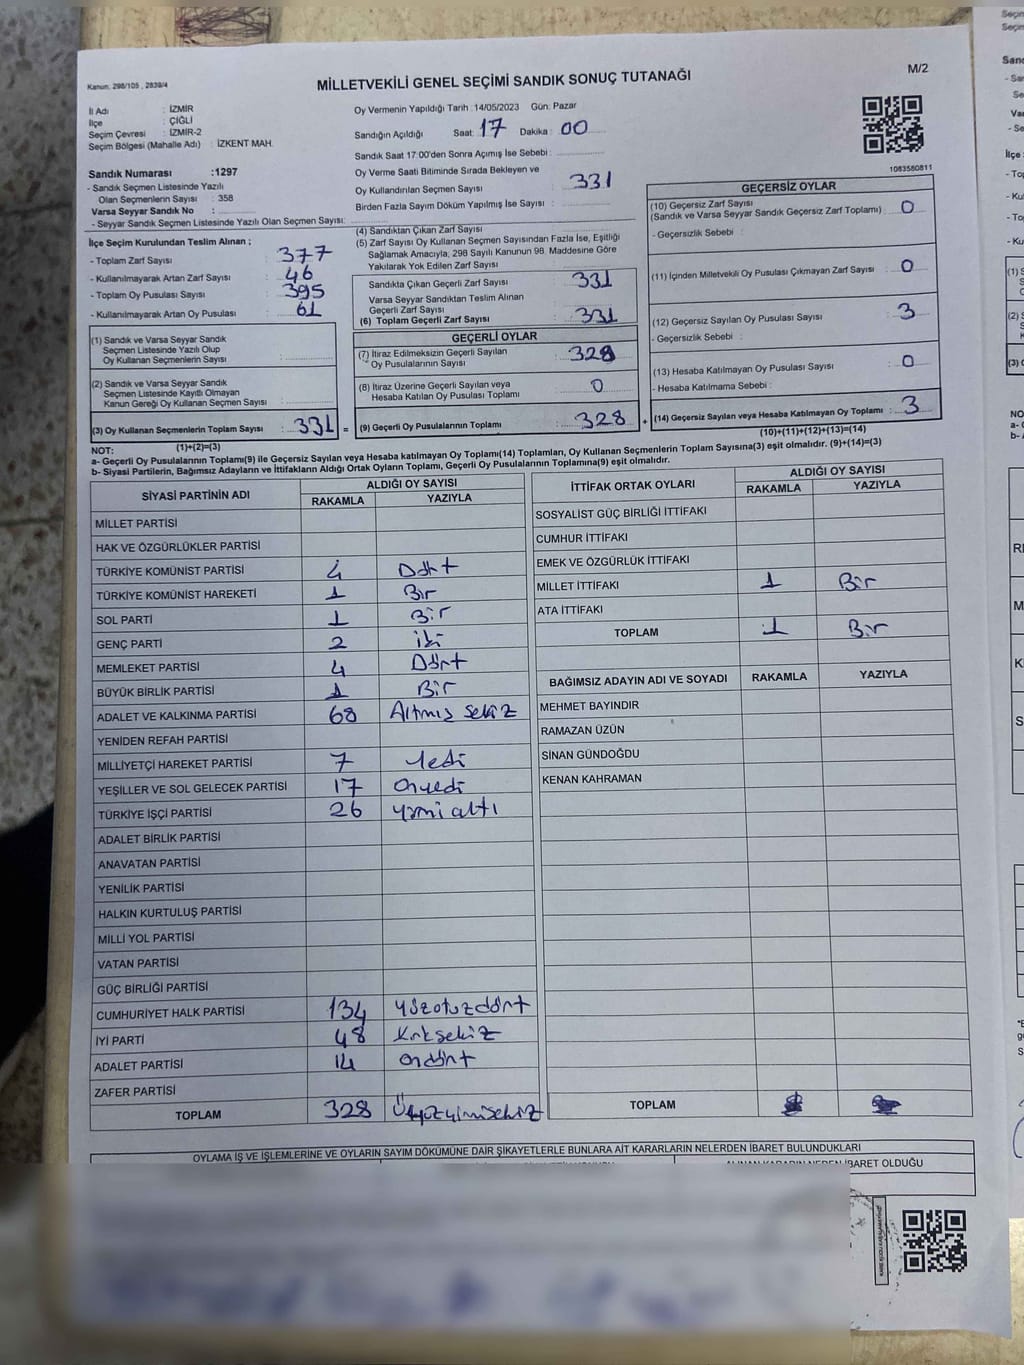 Kanun. 298/105 , 2839/4
MİLLETVEKİLİ GENEL SEÇİMİ SANDIK SONUÇ TUTANAĞI
M/2
İl Adı : İZMİR
İlçe : ÇİĞLİ
Seçim Çevresi : İZMİR-2
Seçim Bölgesi (Mahalle Adı) : İZKENT MAH.
Sandık Numarası :1297
- Sandık Seçmen Listesinde Yazılı
Olan Seçmenlerin Sayısı : 358
Varsa Seyyar Sandık No :
- Seyyar Sandık Seçmen Listesinde Yazılı Olan Seçmen Sayısı:
Oy Vermenin Yapıldığı Tarih :14/05/2023 Gün: Pazar
Sandığın Açıldığı Saat: 17 Dakika : 00
Sandık Saat 17:00'den Sonra Açımış İse Sebebi :
Oy Verme Saati Bitiminde Sırada Bekleyen ve
Oy Kullandırılan Seçmen Sayısı : 331
Birden Fazla Sayım Döküm Yapılmış İse Sayısı :
1083580811
İlçe Seçim Kurulundan Teslim Alınan ;
- Toplam Zarf Sayısı : 377
- Kullanılmayarak Artan Zarf Sayısı : 46
- Toplam Oy Pusulası Sayısı : 395
- Kullanılmayarak Artan Oy Pusulası : 61
(1) Sandık ve Varsa Seyyar Sandık
Seçmen Listesinde Yazılı Olup
Oy Kullanan Seçmenlerin Sayısı :
(2) Sandık ve Varsa Seyyar Sandık
Seçmen Listesinde Kayıtlı Olmayan
Kanun Gereği Oy Kullanan Seçmen Sayısı :
(3) Oy Kullanan Seçmenlerin Toplam Sayısı : 331 =
(1)+(2)=(3)
(4) Sandıktan Çıkan Zarf Sayısı :
(5) Zarf Sayısı Oy Kullanan Seçmen Sayısından Fazla İse, Eşitliği
Sağlamak Amacıyla; 298 Sayılı Kanunun 98. Maddesine Göre
Yakılarak Yok Edilen Zarf Sayısı :
Sandıkta Çıkan Geçerli Zarf Sayısı : 331
Varsa Seyyar Sandıktan Teslim Alınan
Geçerli Zarf Sayısı :
(6) Toplam Geçerli Zarf Sayısı : 331
GEÇERLİ OYLAR
(7) İtiraz Edilmeksizin Geçerli Sayılan
Oy Pusulalarının Sayısı : 328
(8) İtiraz Üzerine Geçerli Sayılan veya
Hesaba Katılan Oy Pusulası Toplamı : 0
(9) Geçerli Oy Pusulalarının Toplamı : 328 +
GEÇERSİZ OYLAR
(10) Geçersiz Zarf Sayısı
(Sandık ve Varsa Seyyar Sandık Geçersiz Zarf Toplamı) : 0
- Geçersizlik Sebebi :
(11) İçinden Milletvekili Oy Pusulası Çıkmayan Zarf Sayısı : 0
(12) Geçersiz Sayılan Oy Pusulası Sayısı : 3
- Geçersizlik Sebebi :
(13) Hesaba Katılmayan Oy Pusulası Sayısı : 0
- Hesaba Katılmama Sebebi :
(14) Geçersiz Sayılan veya Hesaba Katılmayan Oy Toplamı : 3
(10)+(11)+(12)+(13)=(14)
NOT:
a- Geçerli Oy Pusulalarının Toplamı(9) ile Geçersiz Sayılan veya Hesaba katılmayan Oy Toplamı(14) Toplamları, Oy Kullanan Seçmenlerin Toplam Sayısına(3) eşit olmalıdır. (9)+(14)=(3)
b- Siyasi Partilerin, Bağımsız Adayların ve İttifakların Aldığı Ortak Oyların Toplamı, Geçerli Oy Pusulalarının Toplamına(9) eşit olmalıdır.
SİYASİ PARTİNİN ADI ALDIĞI OY SAYISI
RAKAMLA YAZIYLA
MİLLET PARTİSİ
HAK VE ÖZGÜRLÜKLER PARTİSİ
TÜRKİYE KOMÜNİST PARTİSİ 4 Dört
TÜRKİYE KOMÜNİST HAREKETİ 1 Bir
SOL PARTİ 1 Bir
GENÇ PARTİ 2 iki
MEMLEKET PARTİSİ 4 Dört
BÜYÜK BİRLİK PARTİSİ 1 Bir
ADALET VE KALKINMA PARTİSİ 68 Altmış sekiz
YENİDEN REFAH PARTİSİ
MİLLİYETÇİ HAREKET PARTİSİ 7 Yedi
YEŞİLLER VE SOL GELECEK PARTİSİ 17 Onyedi
TÜRKİYE İŞÇİ PARTİSİ 26 yirmi altı
ADALET BİRLİK PARTİSİ
ANAVATAN PARTİSİ
YENİLİK PARTİSİ
HALKIN KURTULUŞ PARTİSİ
MİLLİ YOL PARTİSİ
VATAN PARTİSİ
GÜÇ BİRLİĞİ PARTİSİ
CUMHURİYET HALK PARTİSİ 134 Yüzotuzdört
İYİ PARTİ 48 Kırksekiz
ADALET PARTİSİ 14 ondört
ZAFER PARTİSİ
TOPLAM 328 Üçyüzyirmisekiz
İTTİFAK ORTAK OYLARI ALDIĞI OY SAYISI
RAKAMLA YAZIYLA
SOSYALİST GÜÇ BİRLİĞİ İTTİFAKI
CUMHUR İTTİFAKI
EMEK VE ÖZGÜRLÜK İTTİFAKI
MİLLET İTTİFAKI 1 Bir
ATA İTTİFAKI
TOPLAM 1 Bir
BAĞIMSIZ ADAYIN ADI VE SOYADI RAKAMLA YAZIYLA
MEHMET BAYINDIR
RAMAZAN ÜZÜN
SİNAN GÜNDOĞDU
KENAN KAHRAMAN
TOPLAM
OYLAMA İŞ VE İŞLEMLERİNE VE OYLARIN SAYIM DÖKÜMÜNE DAİR ŞİKAYETLERLE BUNLARA AİT KARARLARIN NELERDEN İBARET BULUNDUKLARI
ALINAN KARARIN NEDEN İBARET OLDUĞU